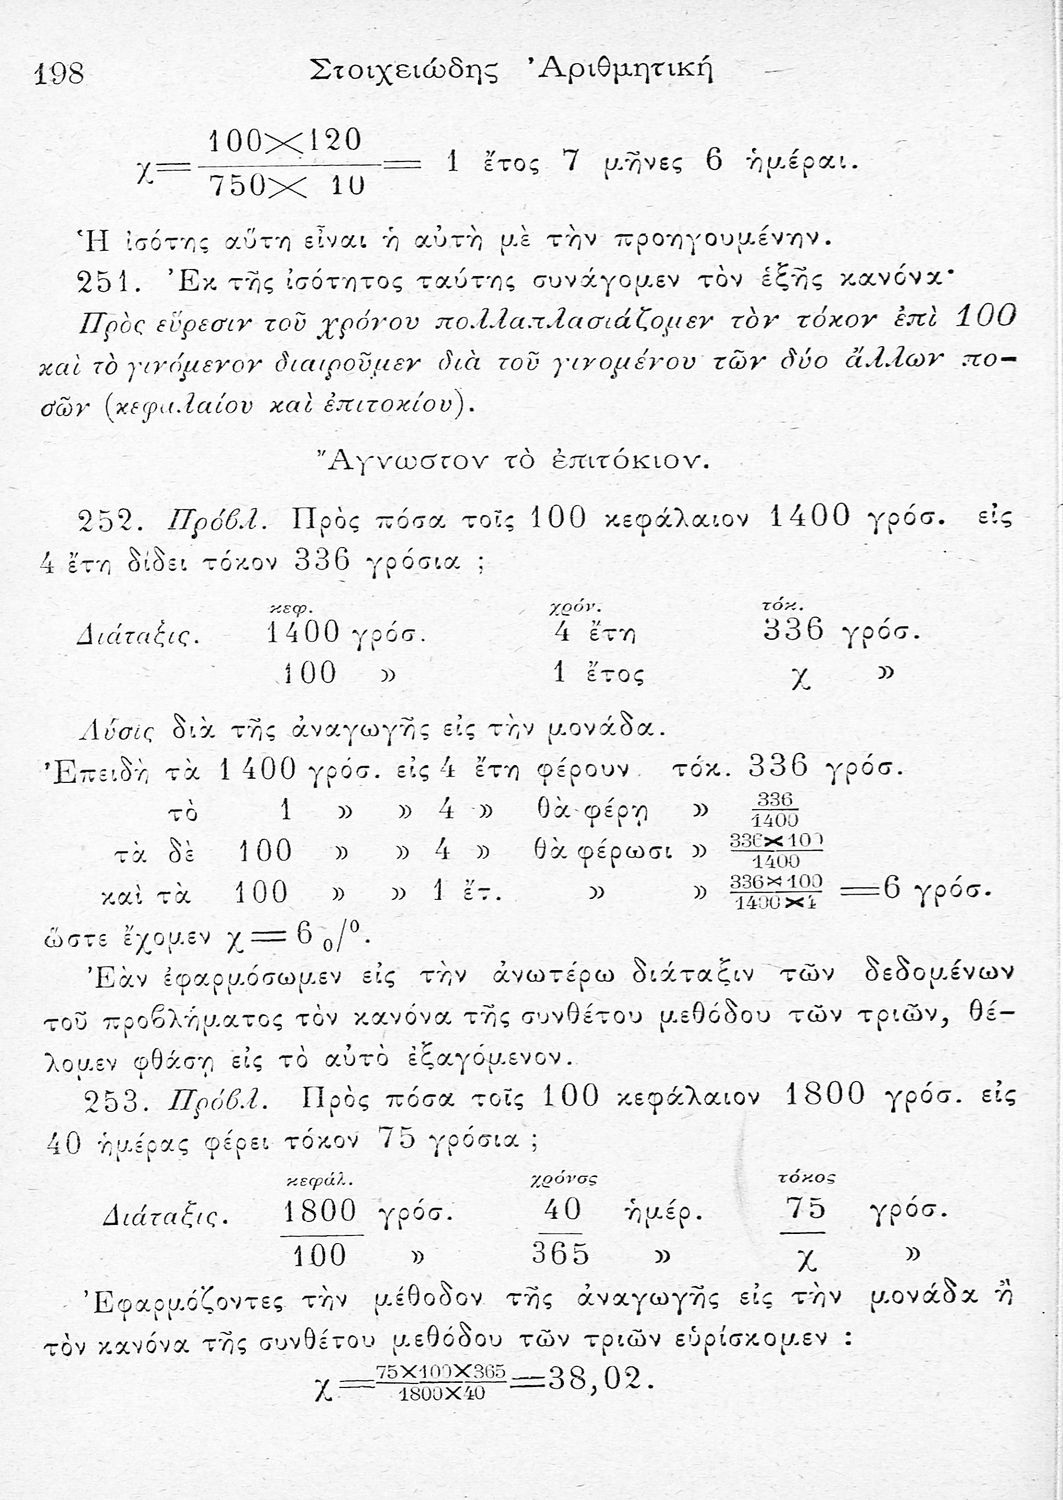 198 Στοιχειώδης Ἀριθμητική
χ= 100×120 / 750× 10 = 1 ἔτος 7 μῆνες 6 ἡμέραι.
Ἡ ἰσότης αὕτη εἶναι ἡ αὐτὴ μὲ τὴν προηγουμένην.
251. Ἐκ τῆς ἰσότητος ταύτης συνάγομεν τὸν ἑξῆς κανόνα·
Πρὸς εὕρεσιν τοῦ χρόνου πολλαπλασιάζομεν τὸν τόκον ἐπὶ 100
καὶ τὸ γινόμενον διαιροῦμεν διὰ τοῦ γινομένου τῶν δύο ἄλλων πο-
σῶν (κεφαλαίου καὶ ἐπιτοκίου).
Ἄγνωστον τὸ ἐπιτόκιον.
252. Πρόβλ. Πρὸς πόσα τοῖς 100 κεφάλαιον 1400 γρόσ. εἰς
4 ἔτη δίδει τόκον 336 γρόσια ;
κεφ. χρόν. τόκ.
Διάταξις. 1400 γρόσ. 4 ἔτη 336 γρόσ.
100 » 1 ἔτος χ »
Λύσις διὰ τῆς ἀναγωγῆς εἰς τὴν μονάδα.
Ἐπειδὴ τὰ 1400 γρόσ. εἰς 4 ἔτη φέρουν τόκ. 336 γρόσ.
τὸ 1 » » 4 » θὰ φέρῃ » 336/1400
τὰ δὲ 100 » » 4 » θὰ φέρωσι » 336×100/1400
καὶ τὰ 100 » » 1 ἔτ. » » 336×100/1400×4 =6 γρόσ.
ὥστε ἔχομεν χ=6 0/0.
Ἐὰν ἐφαρμόσωμεν εἰς τὴν ἀνωτέρω διάταξιν τῶν δεδομένων
τοῦ προβλήματος τὸν κανόνα τῆς συνθέτου μεθόδου τῶν τριῶν, θέ-
λομεν φθάσῃ εἰς τὸ αὐτὸ ἐξαγόμενον.
253. Πρόβλ. Πρὸς πόσα τοῖς 100 κεφάλαιον 1800 γρόσ. εἰς
40 ἡμέρας φέρει τόκον 75 γρόσια ;
κεφάλ. χρόνος τόκος
Διάταξις. 1800 γρόσ. 40 ἡμέρ. 75 γρόσ.
100 » 365 » χ »
Ἐφαρμόζοντες τὴν μέθοδον τῆς ἀναγωγῆς εἰς τὴν μονάδα ἢ
τὸν κανόνα τῆς συνθέτου μεθόδου τῶν τριῶν εὑρίσκομεν :
χ= 75×100×365 / 1800×40 =38,02.